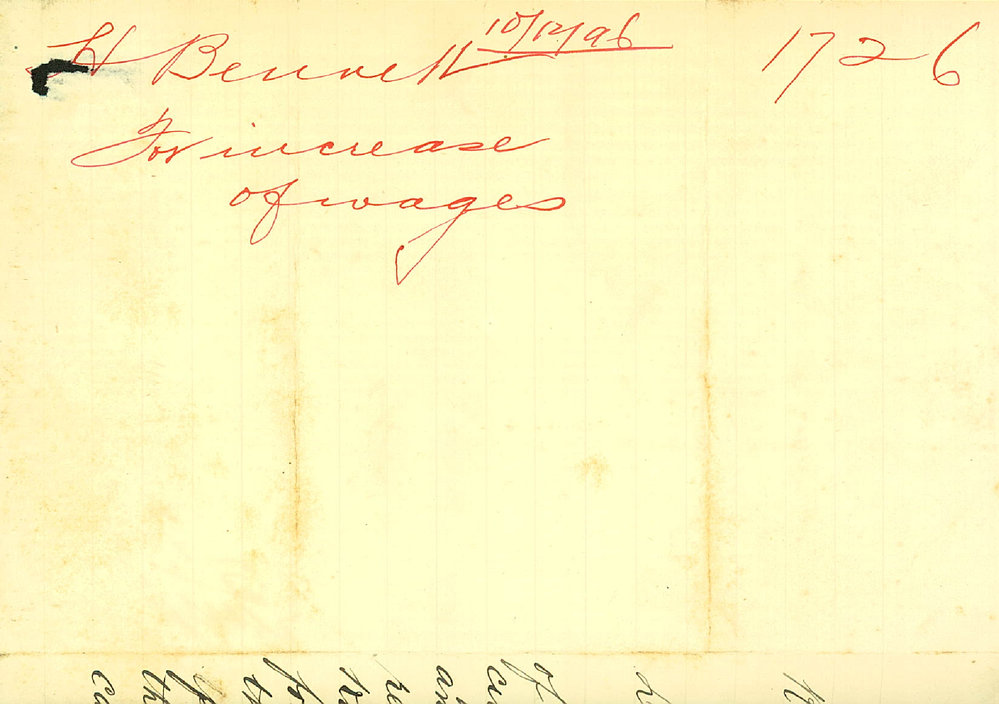 H Bennett 10/12/96 1726
For increase
of wages